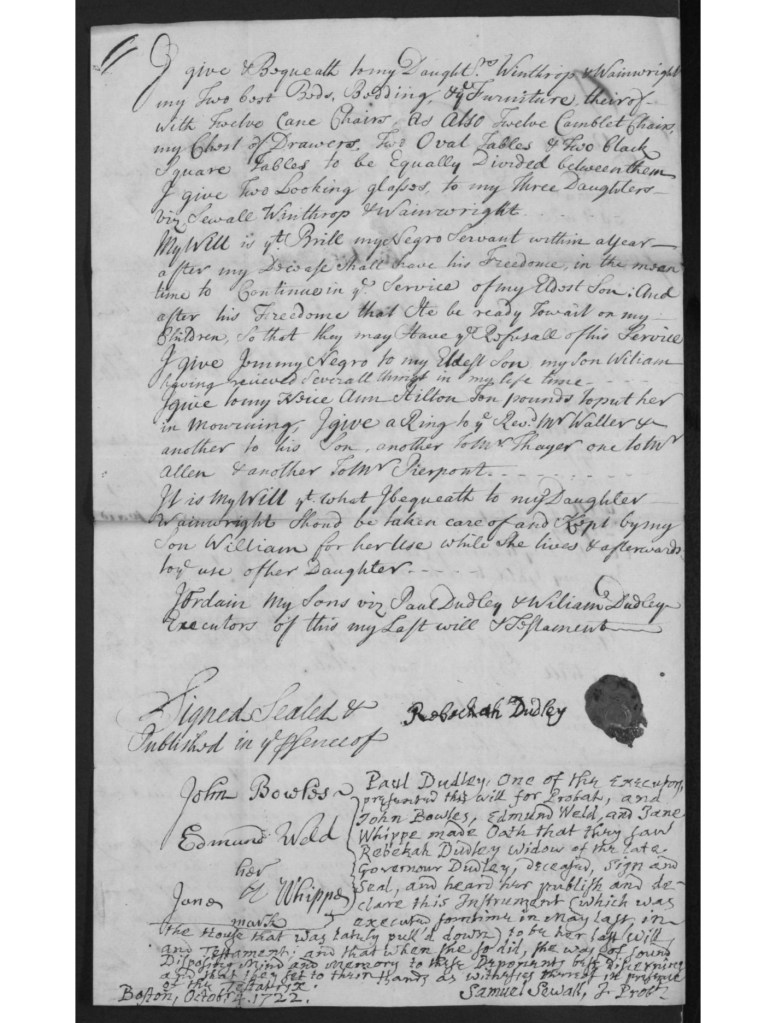 I give & Bequeath to my Daught.rs Winthrop & Wainwright
my Two best Beds, Bedding, & ye Furniture theirof
with Twelve Cane Chairs, as Also Twelve Camblet Chairs,
my Chest of Drawers, Two Oval Tables & Two black
Square Tables to be Equally Divided between them
I give Two Looking glasses, to my Three Daughters
viz Sewall Winthrop & Wainwright
My Will is yt. Brill my Negro Servant within a year
after my Decease shall have his Freedome, in the mean
time to Continue in ye Service of my Eldest Son: And
after his Freedome that He be ready To wait on my
Children, So that they may Have ye Refusall of his Service
I give Jemmy Negro to my Eldest Son my Son Wiliam
having recieved Severall things in my life time
I give to my Neice Ann Hilton pounds to put her
in Mourning, I give a Ring to ye Revd. Mr Walter &
another to his Son, another To Mr Thayer one to Mr
Allen & another To Mr Pierpont
It is My Will yt. what I bequeath to my Daughter
Wainwright Shoud be taken care of and Kept by my
Son William for her Use while She lives & afterwards
to ye use of her Daughter
I Ordain My Sons viz Paul Dudley & Wiliam Dudley
Executors of this my Last will & Testament
Signed Sealed &
Published in ye Psence of
Rebeckah Dudley
John Bowles
Edmund Weld
her
Jane Whippe
mark
Paul Dudley, One of the Executors,
presented this will for Probat, and
John Bowles, Edmund Weld, and Jane
Whippe made Oath that they saw
Rebekah Dudley widow of the late
Governour Dudley, deceased, sign and
Seal, and heard her publish and de-
clare this Instrument (which was
executed somtime in May last, in
the House that was lately pull'd down) to be her last Will
and Testament: and that when she so did, she was of sound
Disposing Mind and memory to these Deponents best discerning
and that they set to their hands as witnesses thereof in presence
of the Testatrix.
Boston, Octobr. 4. 1722.
Samuel Sewall, J. Probt.